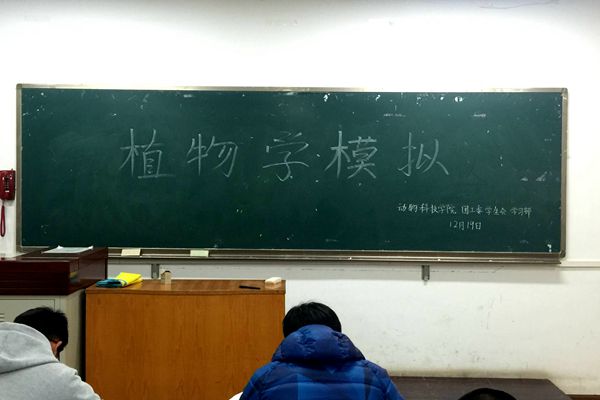 植物学模拟
动物科技学院 团工委学生会 学习部
12月19日